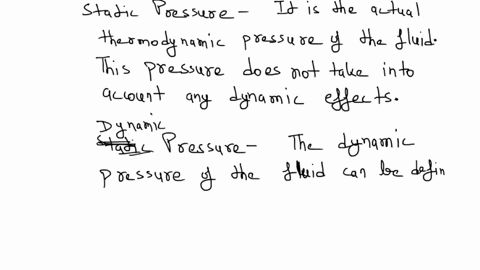 Static Pressure - It is the actual
thermodynamic pressure of the fluid.
This pressure does not take into
account any dynamic effects.
Dynamic
Static Pressure - The dynamic
pressure of the fluid can be defin